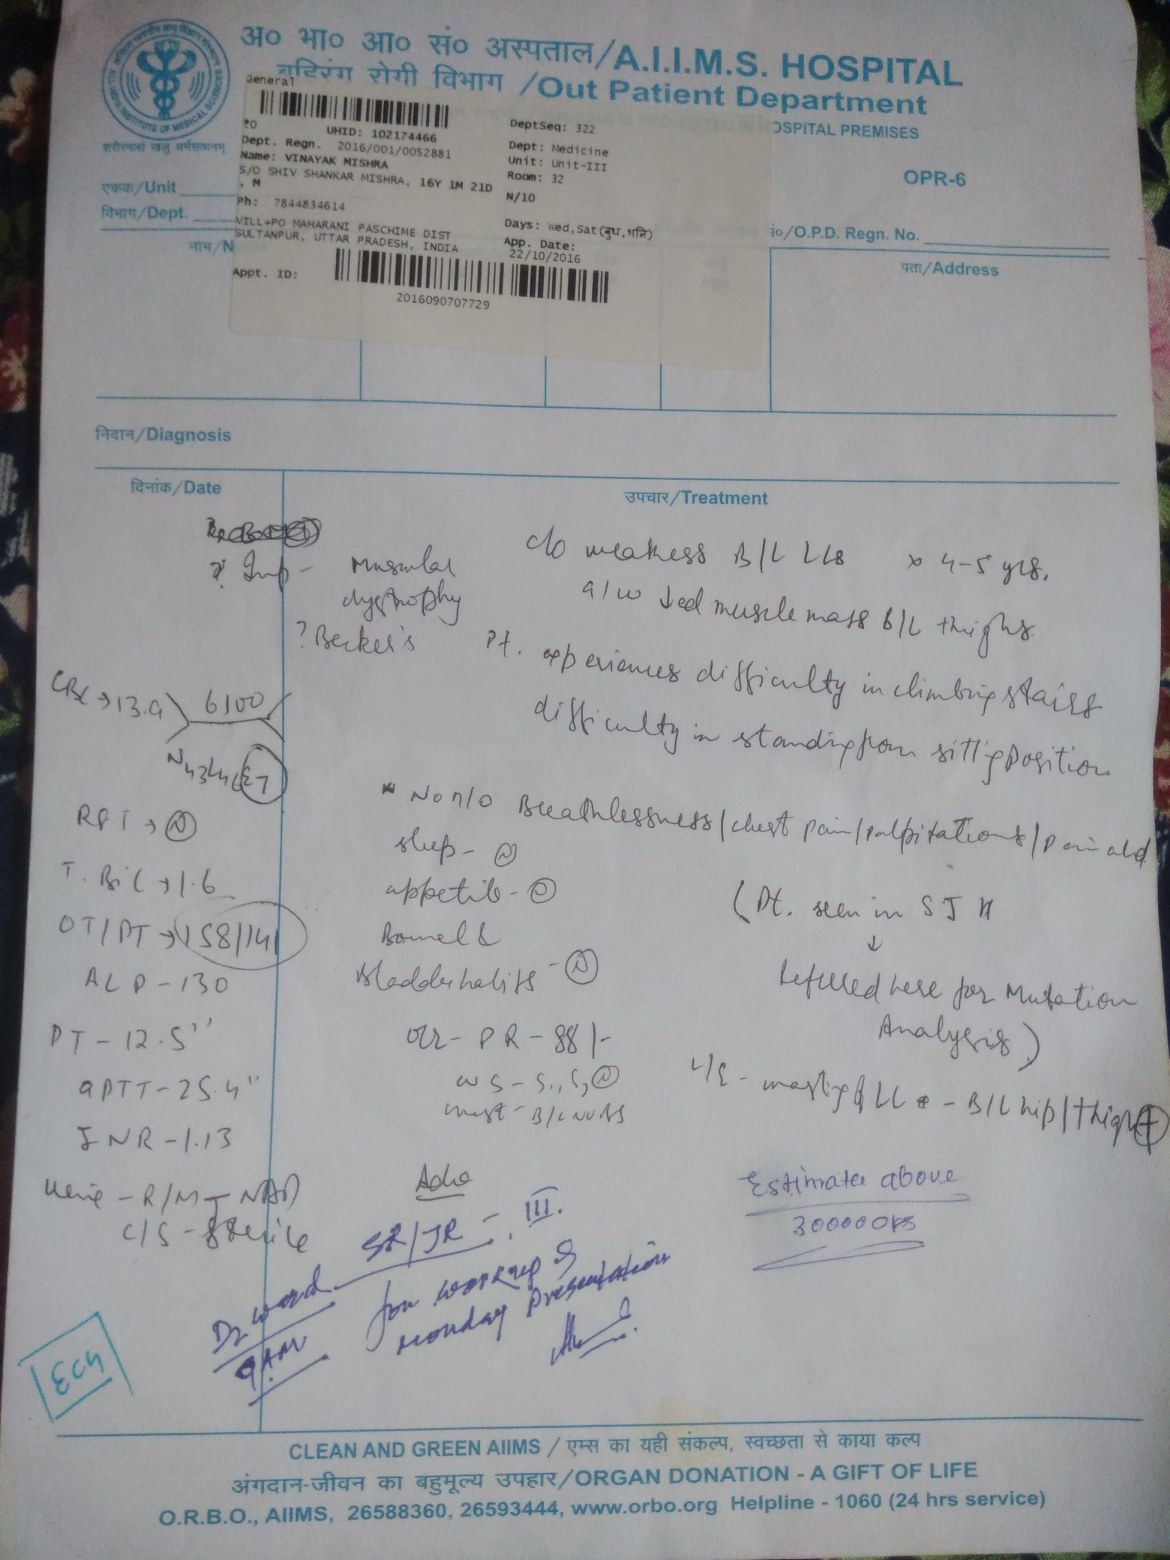 अ० भा० आ० सं० अस्पताल/A.I.I.M.S. HOSPITAL
बहिरंग रोगी विभाग /Out Patient Department
OSPITAL PREMISES
शरीरमाद्यं खलु धर्मसाधनम्
OPR-6
General
UHID: 102174466
Dept. Regn. 2016/001/0052881
Name: VINAYAK MISHRA
S/O SHIV SHANKAR MISHRA, 16Y 1M 21D
, M
Ph: 7844834614
VILL+PO MAHARANI PASCHIME DIST
SULTANPUR, UTTAR PRADESH, INDIA
Appt. ID:
2016090707729
DeptSeq: 322
Dept: Medicine
Unit: Unit-III
Room: 32
N/10
Days: Wed,Sat(बुध,शनि)
App. Date:
22/10/2016
एकक/Unit
विभाग/Dept.
नाम/N
io/O.P.D. Regn. No.
पता/Address
निदान/Diagnosis
दिनांक/Date
उपचार/Treatment
Imp - Muscular
dystrophy
? Becker's
c/o weakness B/L LLs x 4-5 yrs.
a/w ↓ed muscle mass B/L thighs
Pt. experiences difficulty in climbing stairs
difficulty in standing from sitting position
* No h/o Breathlessness/chest pain/palpitations/pain abd
sleep - (N)
appetite - (N)
Bowel &
Bladder habits - (N)
(Pt. seen in SJH
↓
Referred here for Mutation
Analysis)
O/E - PR - 88/-
CVS - S1, S2 (N)
chest - B/L NVBS
L/E - wasting of LL - B/L hip/thigh (+)
CBC → 13.9 6100
N43L46E7
RFT → (N)
T. Bil → 1.6
OT/PT → 158/141
ALP - 130
PT - 12.5''
aPTT - 25.4''
INR - 1.13
Urine - R/M - NAD
C/S - sterile
Adv
SR/JR - III.
D2 ward for workup &
9 AM Monday presentation
Estimate above
300000rs
ECG
CLEAN AND GREEN AIIMS / एम्स का यही संकल्प, स्वच्छता से काया कल्प
अंगदान-जीवन का बहुमूल्य उपहार/ORGAN DONATION - A GIFT OF LIFE
O.R.B.O., AIIMS, 26588360, 26593444, www.orbo.org Helpline - 1060 (24 hrs service)